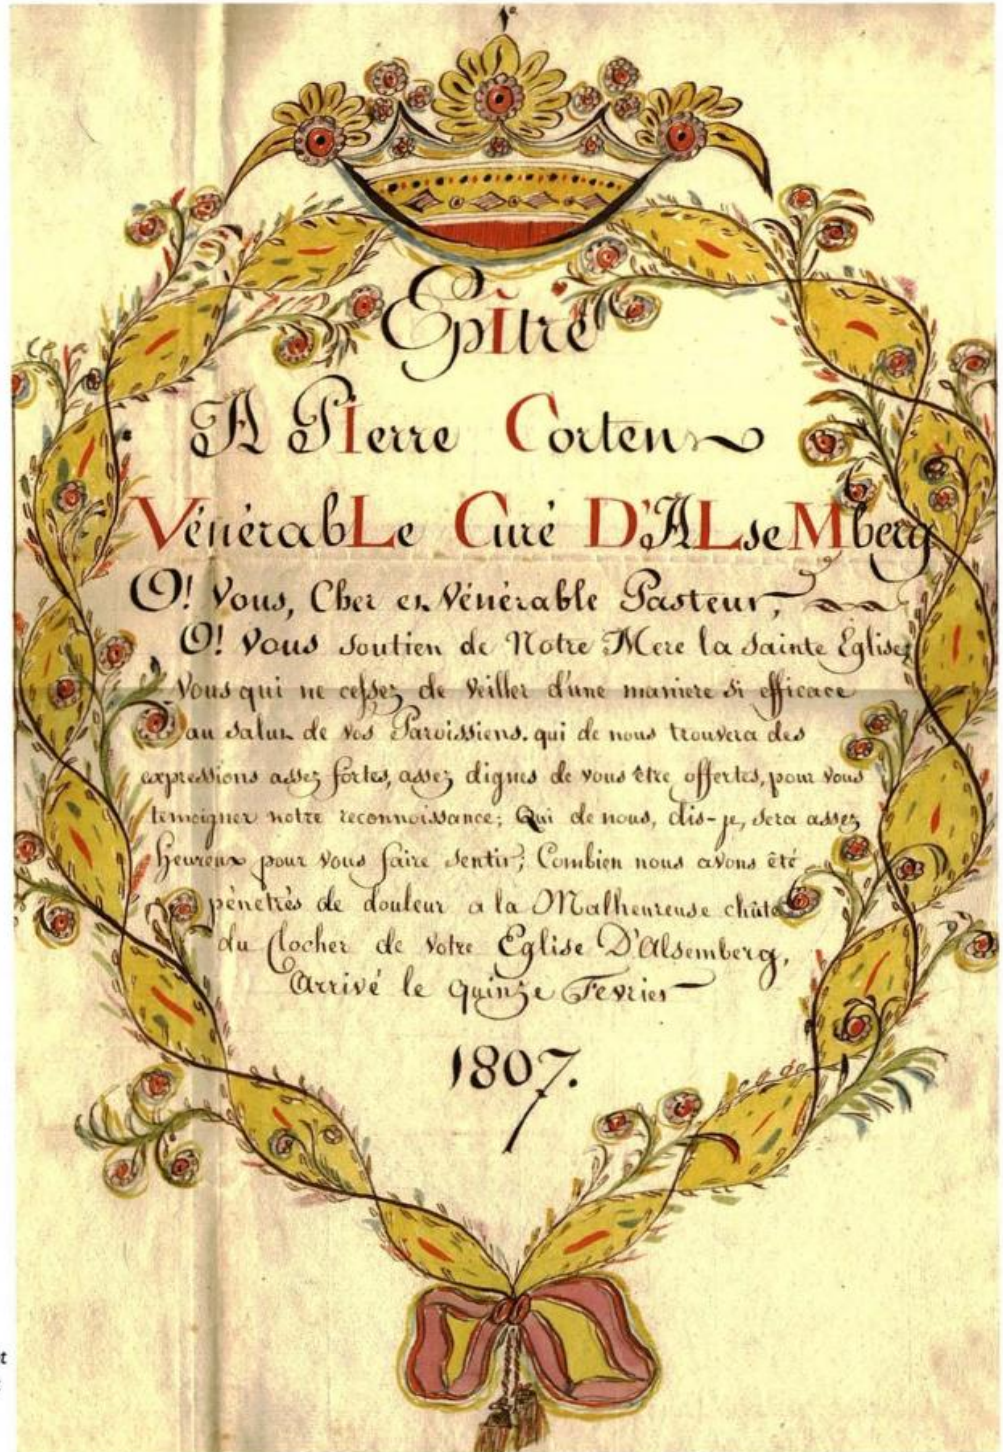 1º
EpĬtre
A PIerre Corten
VénérabLe Curé D'ALseMberg
O! Vous, Cher et Vénérable Pasteur,
O! Vous soutien de Notre Mere la sainte Eglise,
Vous qui ne cessez de veiller d'une maniere si efficace
au salut de vos Paroissiens. qui de nous trouvera des
expressions assez fortes, assez dignes de vous être offertes, pour vous
temoigner notre reconnoissance; Qui de nous, dis-je, sera assez
Heureux pour vous faire sentir; Combien nous avons été
pénetrés de douleur a la Malheureuse chûte
du Clocher de votre Eglise D'Alsemberg,
Arrivé le quinze Fevrier
1807.